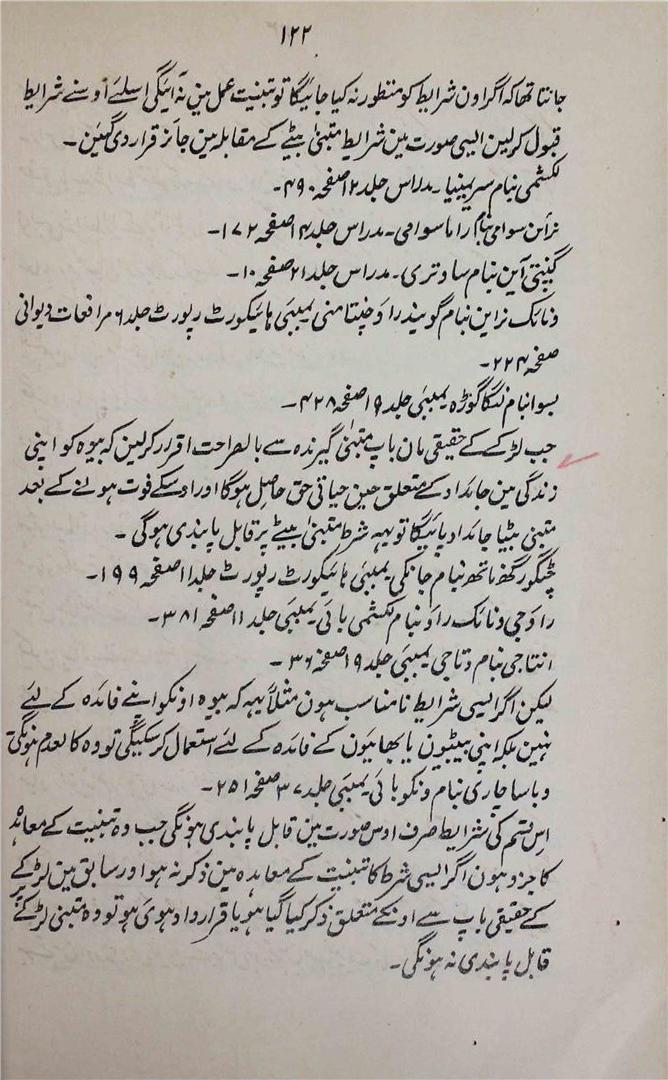 ۱۲۲
جانتا تھا کہ اگر اون شرایط کو منظور نہ کیا جائیگا تو تبنیت عمل مین نہ آئیگی اسلئے اوسنے شرایط
قبول کرلین ایسی صورت مین شرایط متبنٰی بیٹے کے مقابلہ مین جائز قرار دی گئین ۔
لکشمی بنام سبرمینیا ۔ مدراس جلد ۱۲ صفحہ ۴۹۰ ۔
نرائن سوامی بنام راما سوامی ۔ مدراس جلد ۱۴ صفحہ ۱۷۲ ۔
گنپتی آین بنام ساوتری ۔ مدراس جلد ۲۱ صفحہ ۱۰ ۔
ونائک نراین بنام گوبیندراو چنتامنی بمبئی ہائیکورٹ رپورٹ جلد ۶ مرافعات دیوانی
صفحہ ۲۲۴ ۔
بسوا بنام لنگا گوڑہ بمبئی جلد ۱۹ صفحہ ۴۲۸ ۔
جب لڑکے کے حقیقی مان باپ متبنٰی گیرندہ سے بالصراحت اقرار کرلین کہ بیوہ کو اپنی
زندگی مین جائداد کے متعلق حین حیاتی حق حاصل ہوگا اور اوسکے فوت ہونے کے بعد
متبنٰی بیٹا جائداد پائیگا تو یہہ شرط متبنٰی بیٹے پر قابل پابندی ہوگی ۔
چٹکو رگھناتھ بنام جانکی بمبئی ہائیکورٹ رپورٹ جلد ۱۱ صفحہ ۱۹۹ ۔
راوجی ونائک راو بنام لکشمی بائی بمبئی جلد ۱۱ صفحہ ۳۸۱ ۔
انتاجی بنام دتاجی بمبئی جلد ۱۹ صفحہ ۳۶ ۔
لیکن اگر ایسی شرایط نامناسب ہون مثلاً یہہ کہ بیوہ اونکو اپنے فائدہ کے لئے
نہین بلکہ اپنی بیٹیون یا بھائیون کے فائدہ کے لئے استعمال کرسکیگی تو وہ کالعدم ہونگی
ویاسا چاری بنام ونکو بائی بمبئی جلد ۳۷ صفحہ ۲۵۱ ۔
اس قسم کی شرایط صرف اوس صورت مین قابل پابندی ہونگی جب وہ تبنیت کے معاہدہ
کا جزو ہون اگر ایسی شرط کا تبنیت کے معاہدہ مین ذکر نہ ہو اور سابق مین لڑکے
کے حقیقی باپ سے اونکے متعلق ذکر کیا گیا ہو یا قرارداد ہوی ہو تو وہ متبنٰی لڑکے پر
قابل پابندی نہ ہونگی ۔